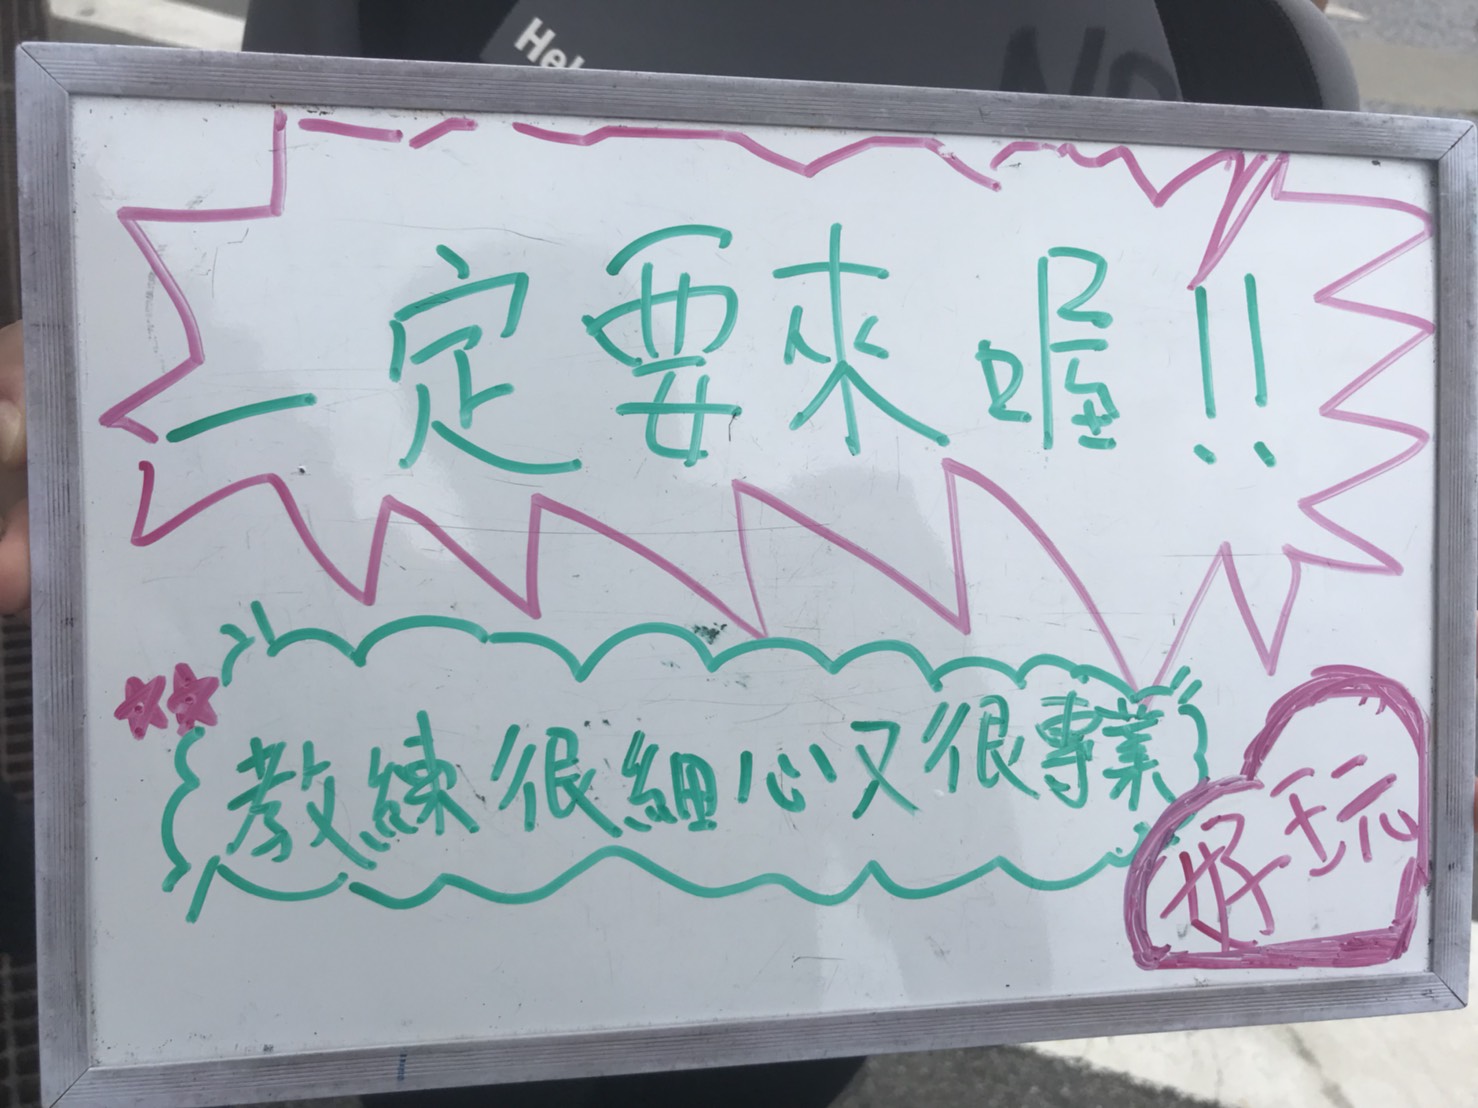 Hel
一定要來喔!!
教練很細心又很專業
好玩